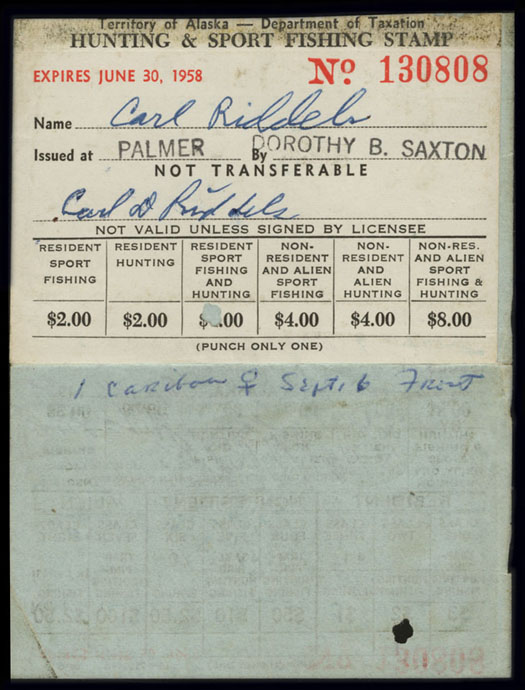 Territory of Alaska — Department of Taxation
HUNTING & SPORT FISHING STAMP
EXPIRES JUNE 30, 1958 No 130808
Name Carl Riddels
Issued at PALMER By DOROTHY B. SAXTON
NOT TRANSFERABLE
Carl D Riddels
NOT VALID UNLESS SIGNED BY LICENSEE
RESIDENT SPORT FISHING
RESIDENT HUNTING
RESIDENT SPORT FISHING AND HUNTING
NON-RESIDENT AND ALIEN SPORT FISHING
NON-RESIDENT AND ALIEN HUNTING
NON-RES. AND ALIEN SPORT FISHING & HUNTING
$2.00 $2.00 .00 $4.00 $4.00 $8.00
(PUNCH ONLY ONE)
1 Caribou ♀ Sept. 6